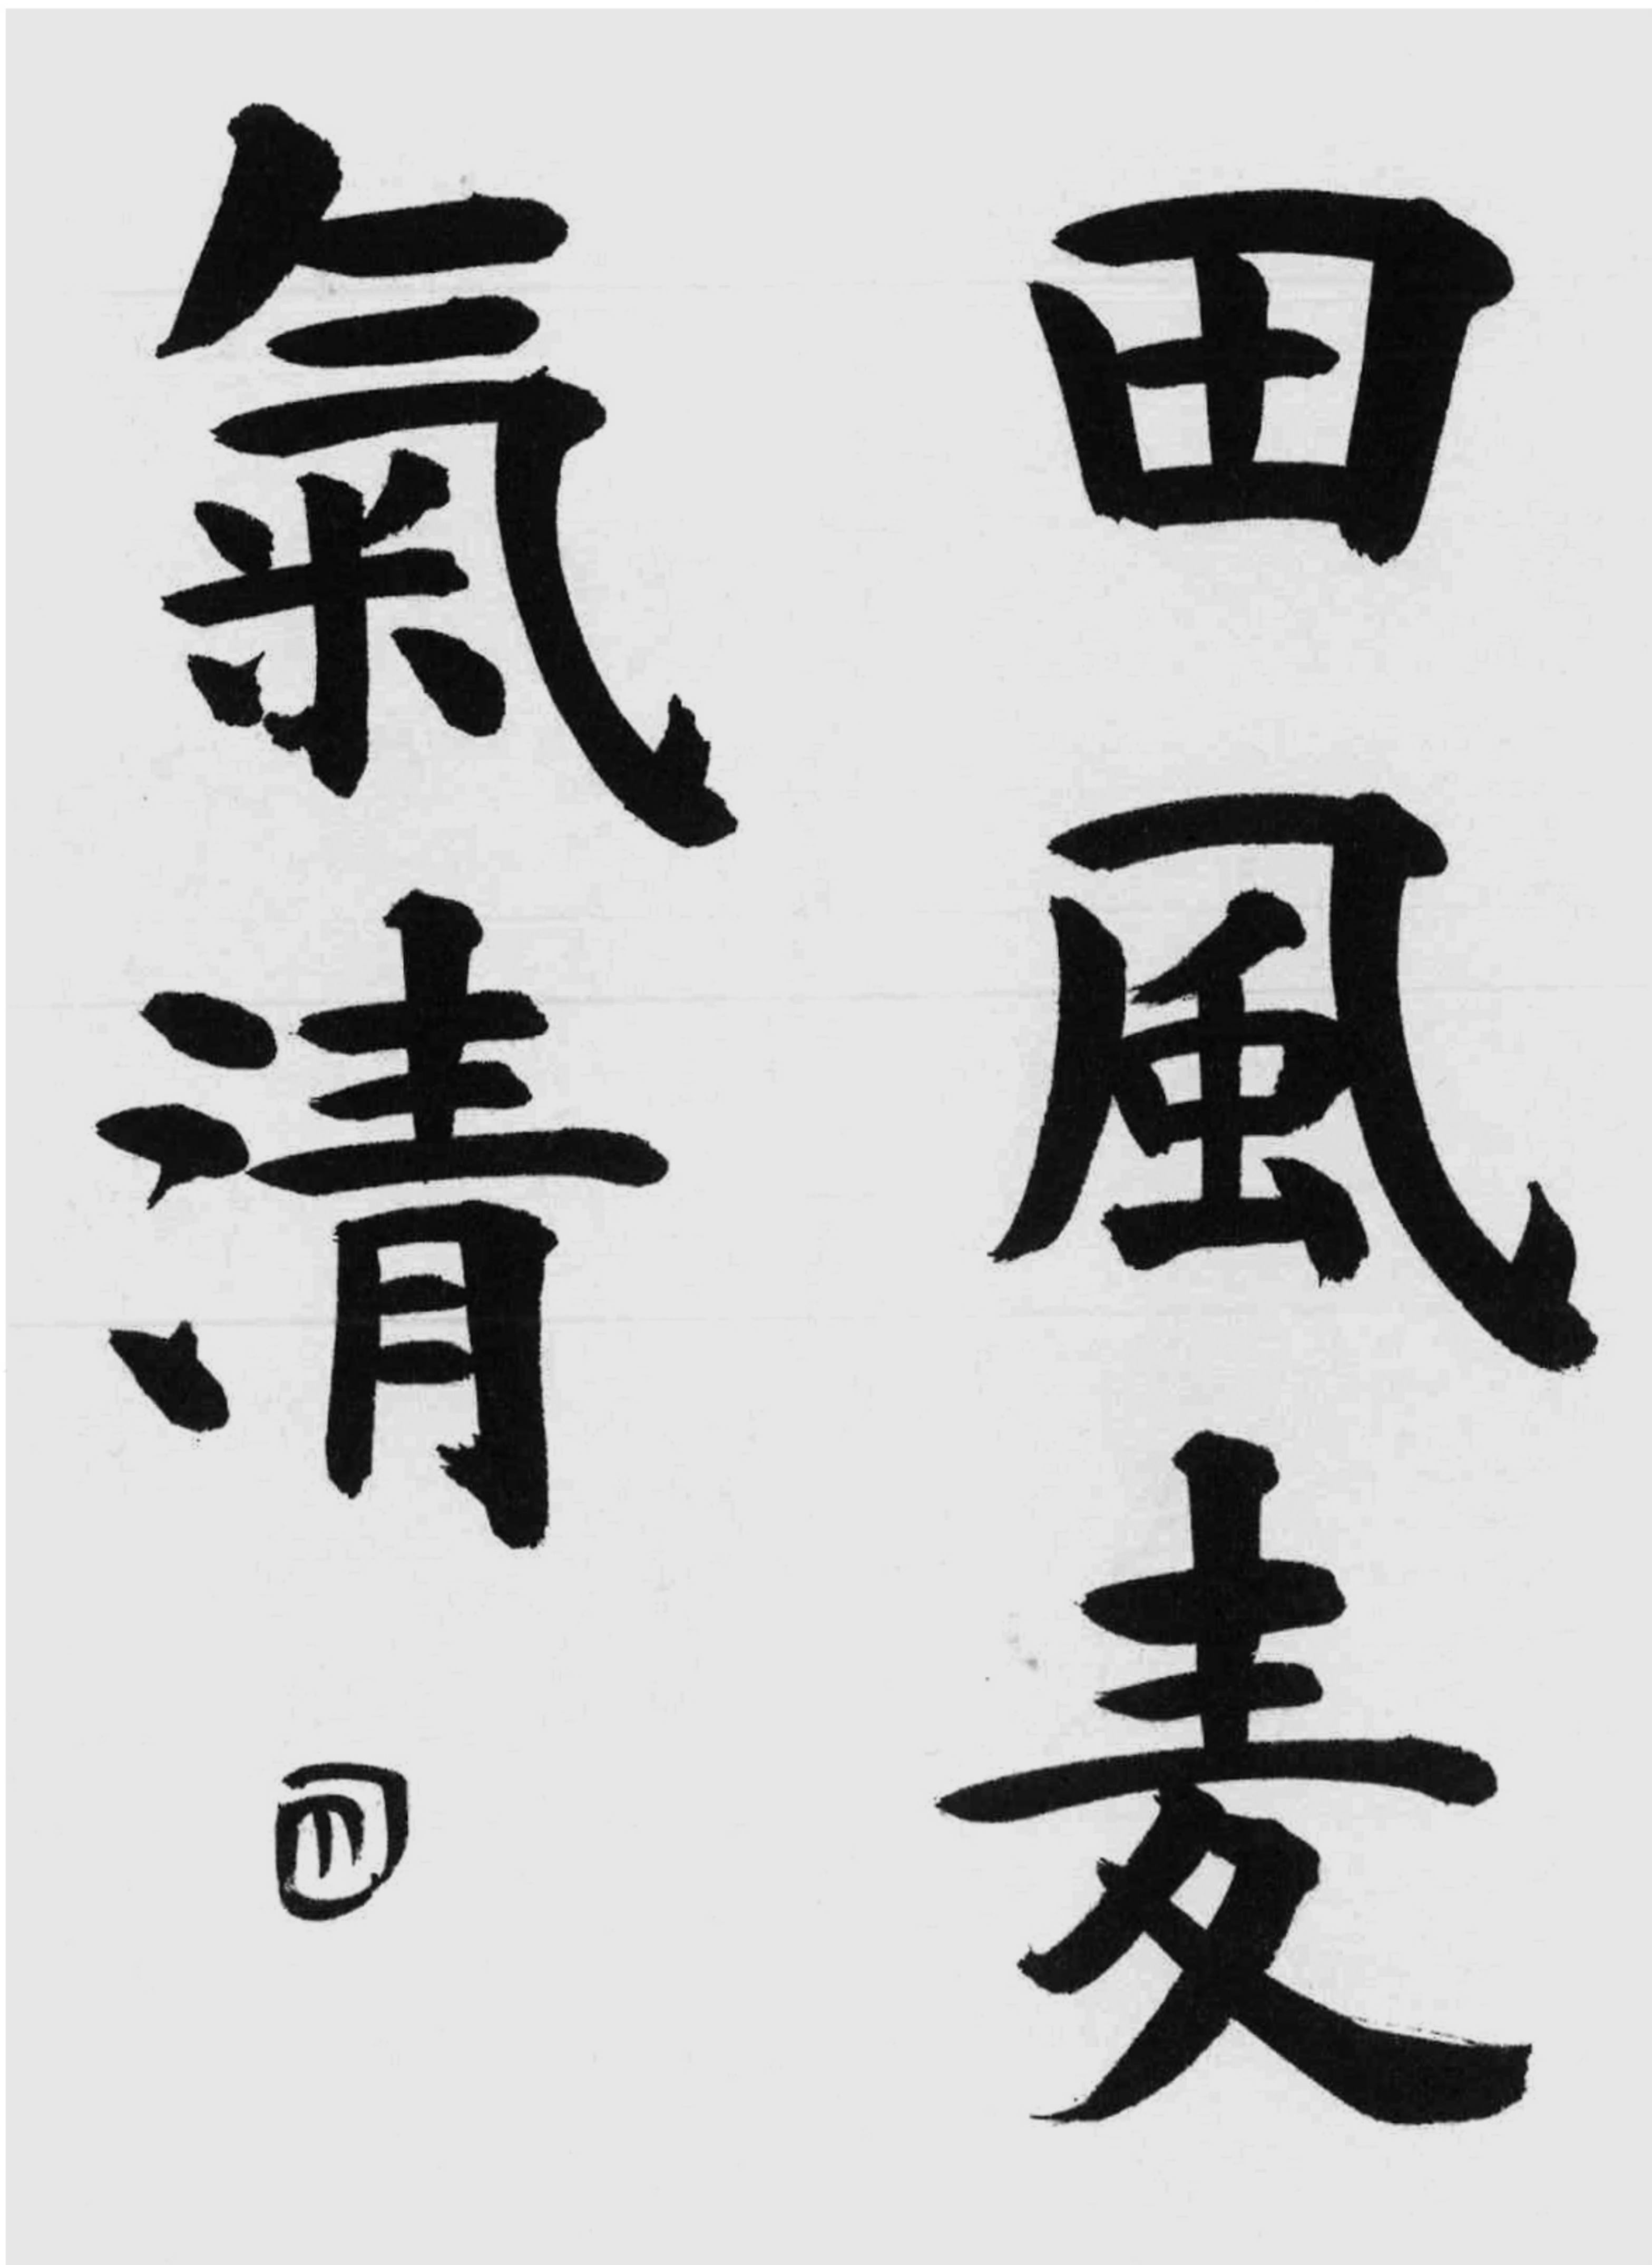 田風麦
氣清